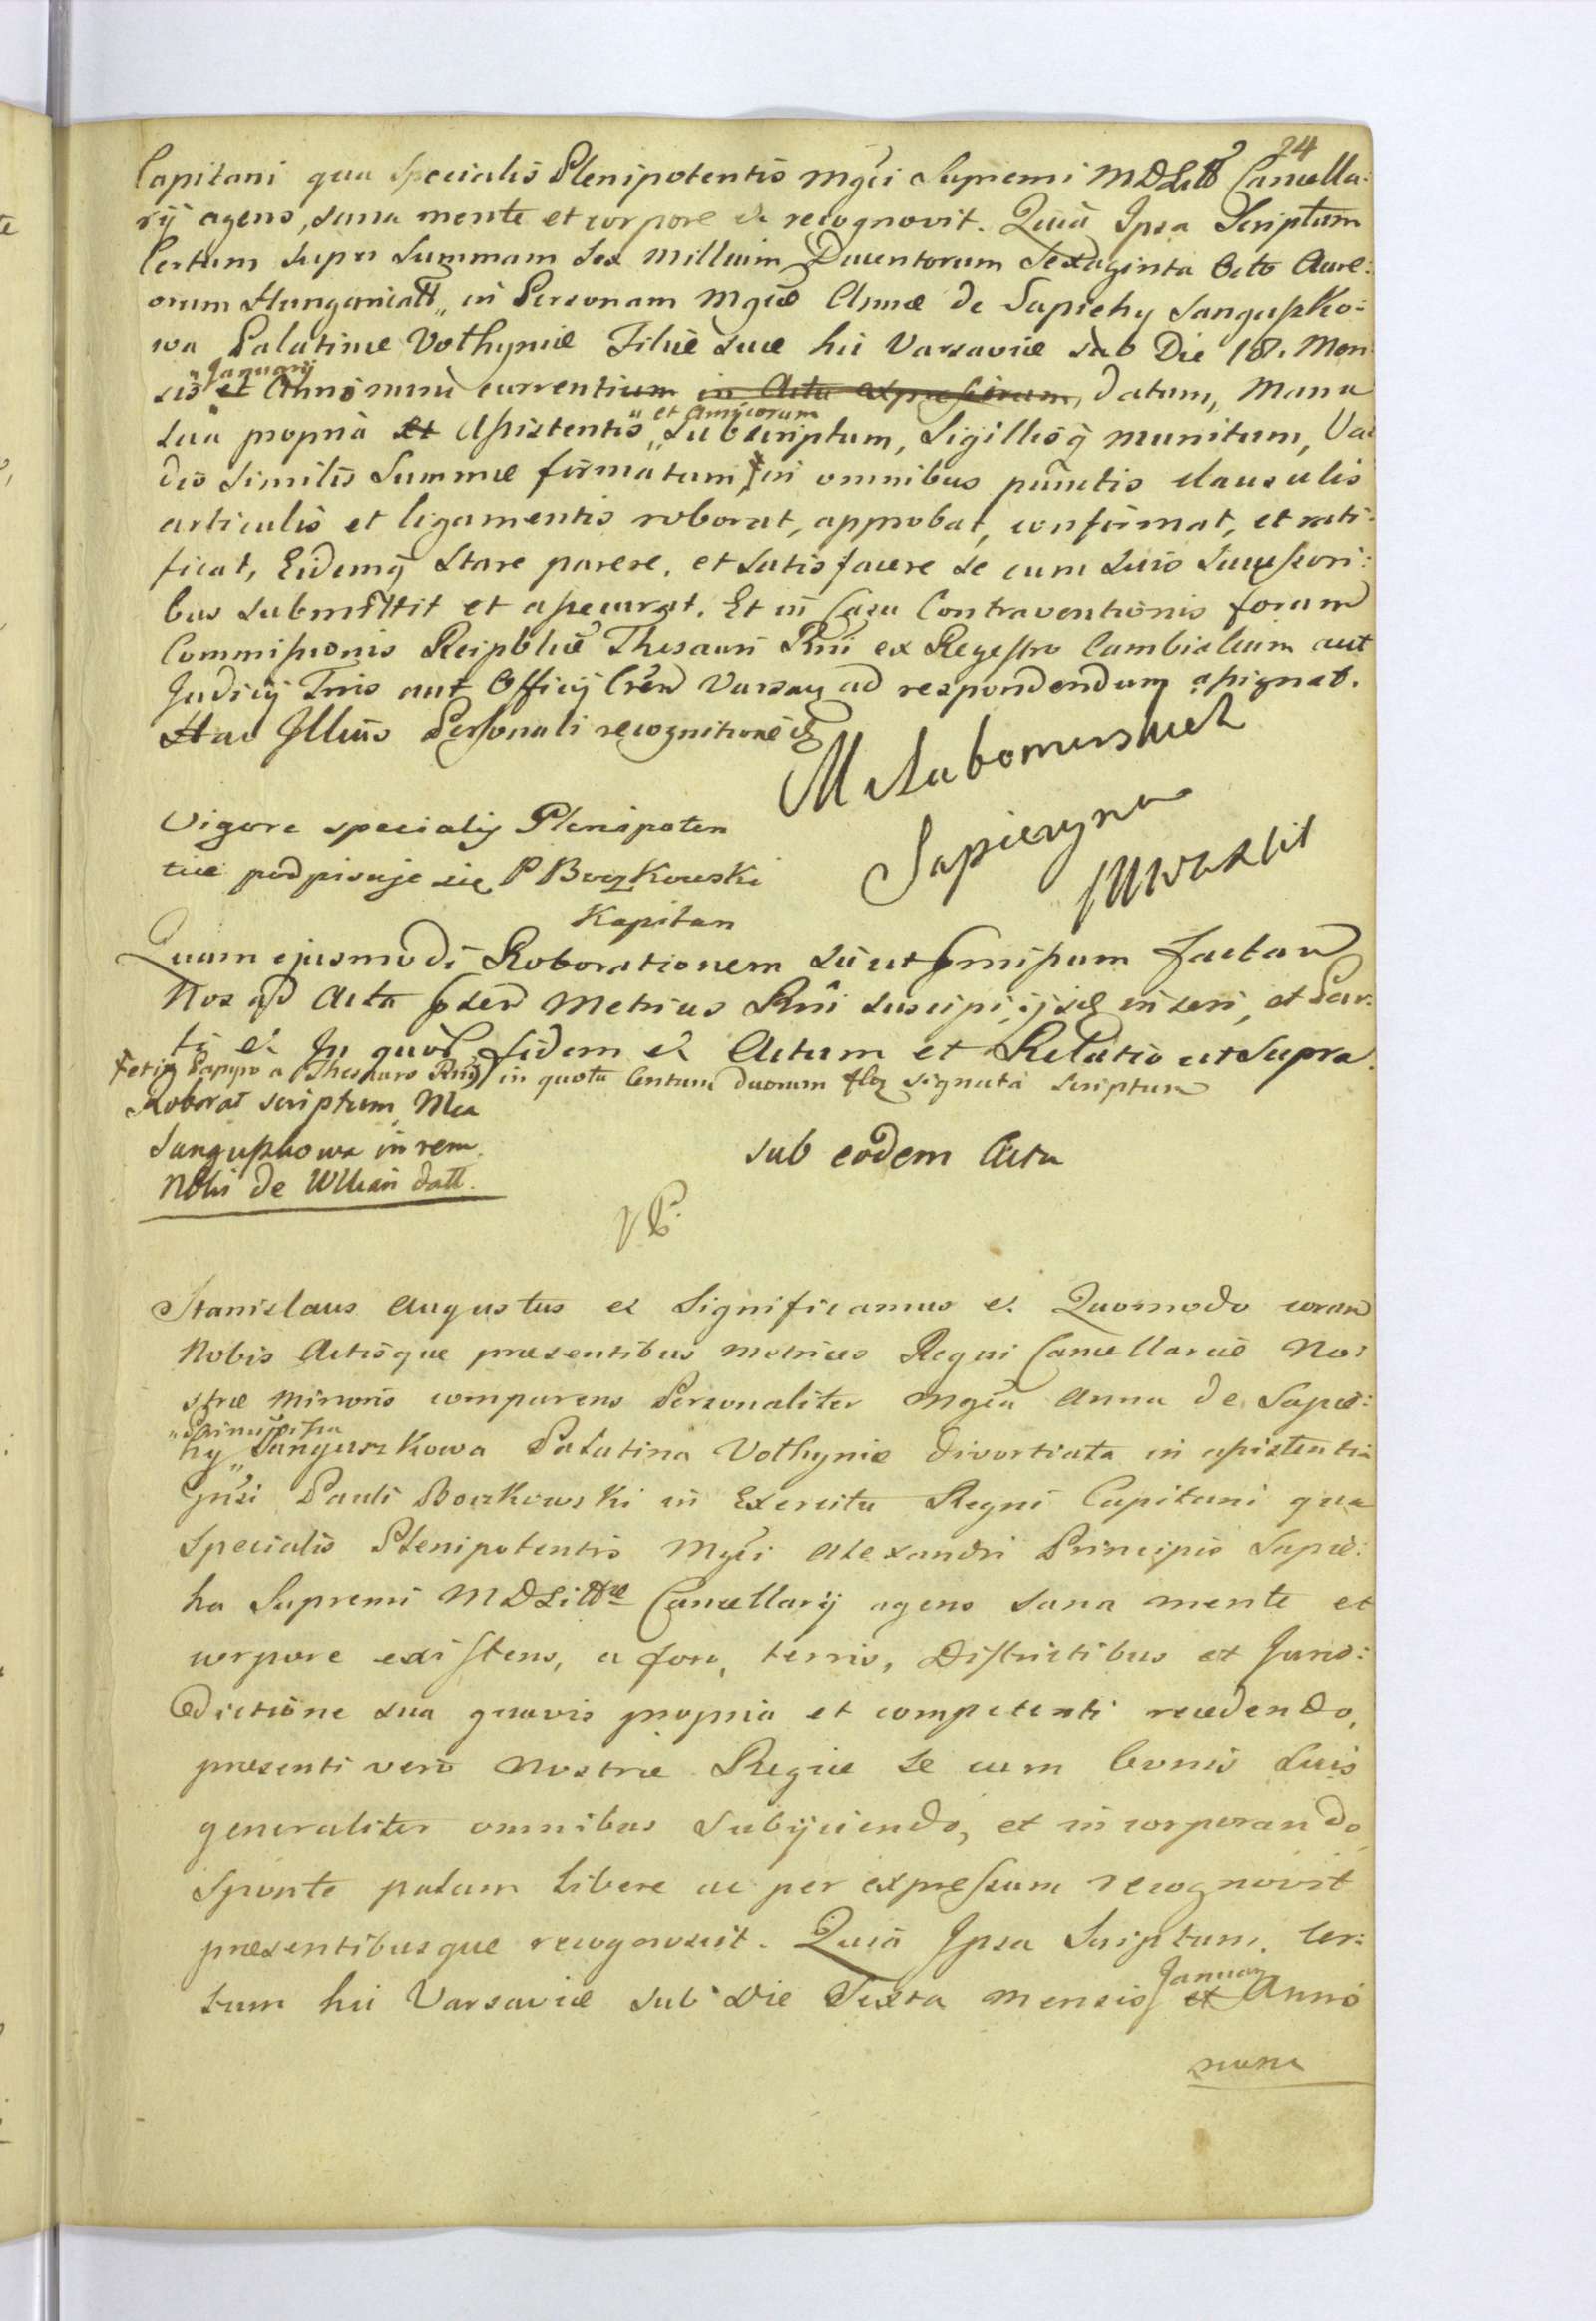 24
Capitani qua Specialis Plenipotentis Mgci Supremi MDLitt Cancella:
rij agens, sana mente et corpore &c recognovit. Quia Ipsa Scriptum
Certum supra Summam Sex Millium Ducentorum Sexaginta Octo Aure:
orum Hungaricall„ in Personam Mgcæ Annæ de Sapiehy Sanguszko:
wa Palatinæ Volhyniæ Filiæ suæ hic Varsaviæ sub Die 18. Men
„Januarij
sis et Anno nunc currentium in Acta expressorum, datum, Manu
„et Amicorum
sua propria et Assistentis„ subscriptum, Sigillisq munitum, Va:
dio similis Summæ firmatum, in omnibus punctis clausulis
articulis et ligamentis roborat, approbat, confirmat, et rati:
ficat, Eidemq stare parere, et satisfacere se cum suis Successori:
bus submittit et assecurat. Et in Casu Contraventionis forum
Commissionis Reipblicæ Thesauri Rni ex Regestro Cambialium aut
Judicij Trris aut Officij Cren Varsav ad respondendum assignat.
Hac Illius Personali recognitione &
M Lubomirskich
Sapiezyna
Vigore specialis Plenipoten
tiæ podpisuje się P Boczkowski
Kapitan
Quam ejusmodi Roborationem sicut præmissum factam
Nos ad Acta psten Metrices Rni suscipi, ijsq inseri, et Par:
ti & In quor fidem & Actum et Relatio ut supra.
Fertig Papyro a Thesauro Rni in quota Centum duorum flor signata scriptum
Roborat scriptum Mca
Sanguszkowa in rem
Nblis de Wllain datt.
sub eodem Actu
Stanislaus Augustus & Significamus &. Quomodo coram
Nobis Actisque præsentibus Metrices Regni Cancellariæ No:
stræ Minoris comparens Personaliter Mgca Anna de Sapie:
hy„ Sanguszkowa Palatina Volhyniæ divortiata in assistentia
Gnsi Pauli Boczkowski in Exercitu Regni Capitani qua
Specialis Plenipotentis Mgci Alexandri Principis Sapie:
ha Supremi MDLittæ Cancellarij agens sana mente et
corpore existens, a foro, terris, Districtibus et Juris:
dictione sua quavis propria et competenti recedendo,
præsenti vero Nostræ Regiæ se cum bonis suis
generaliter omnibus subijciendo, et incorporando
Sponte palam libere ac per expressum recognovit
præsentibusque recognoscit. Quia Ipsa Scriptum, Cer:
Januar
tum hic Varsaviæ sub Die Sexta Mensis et Anno
nunc